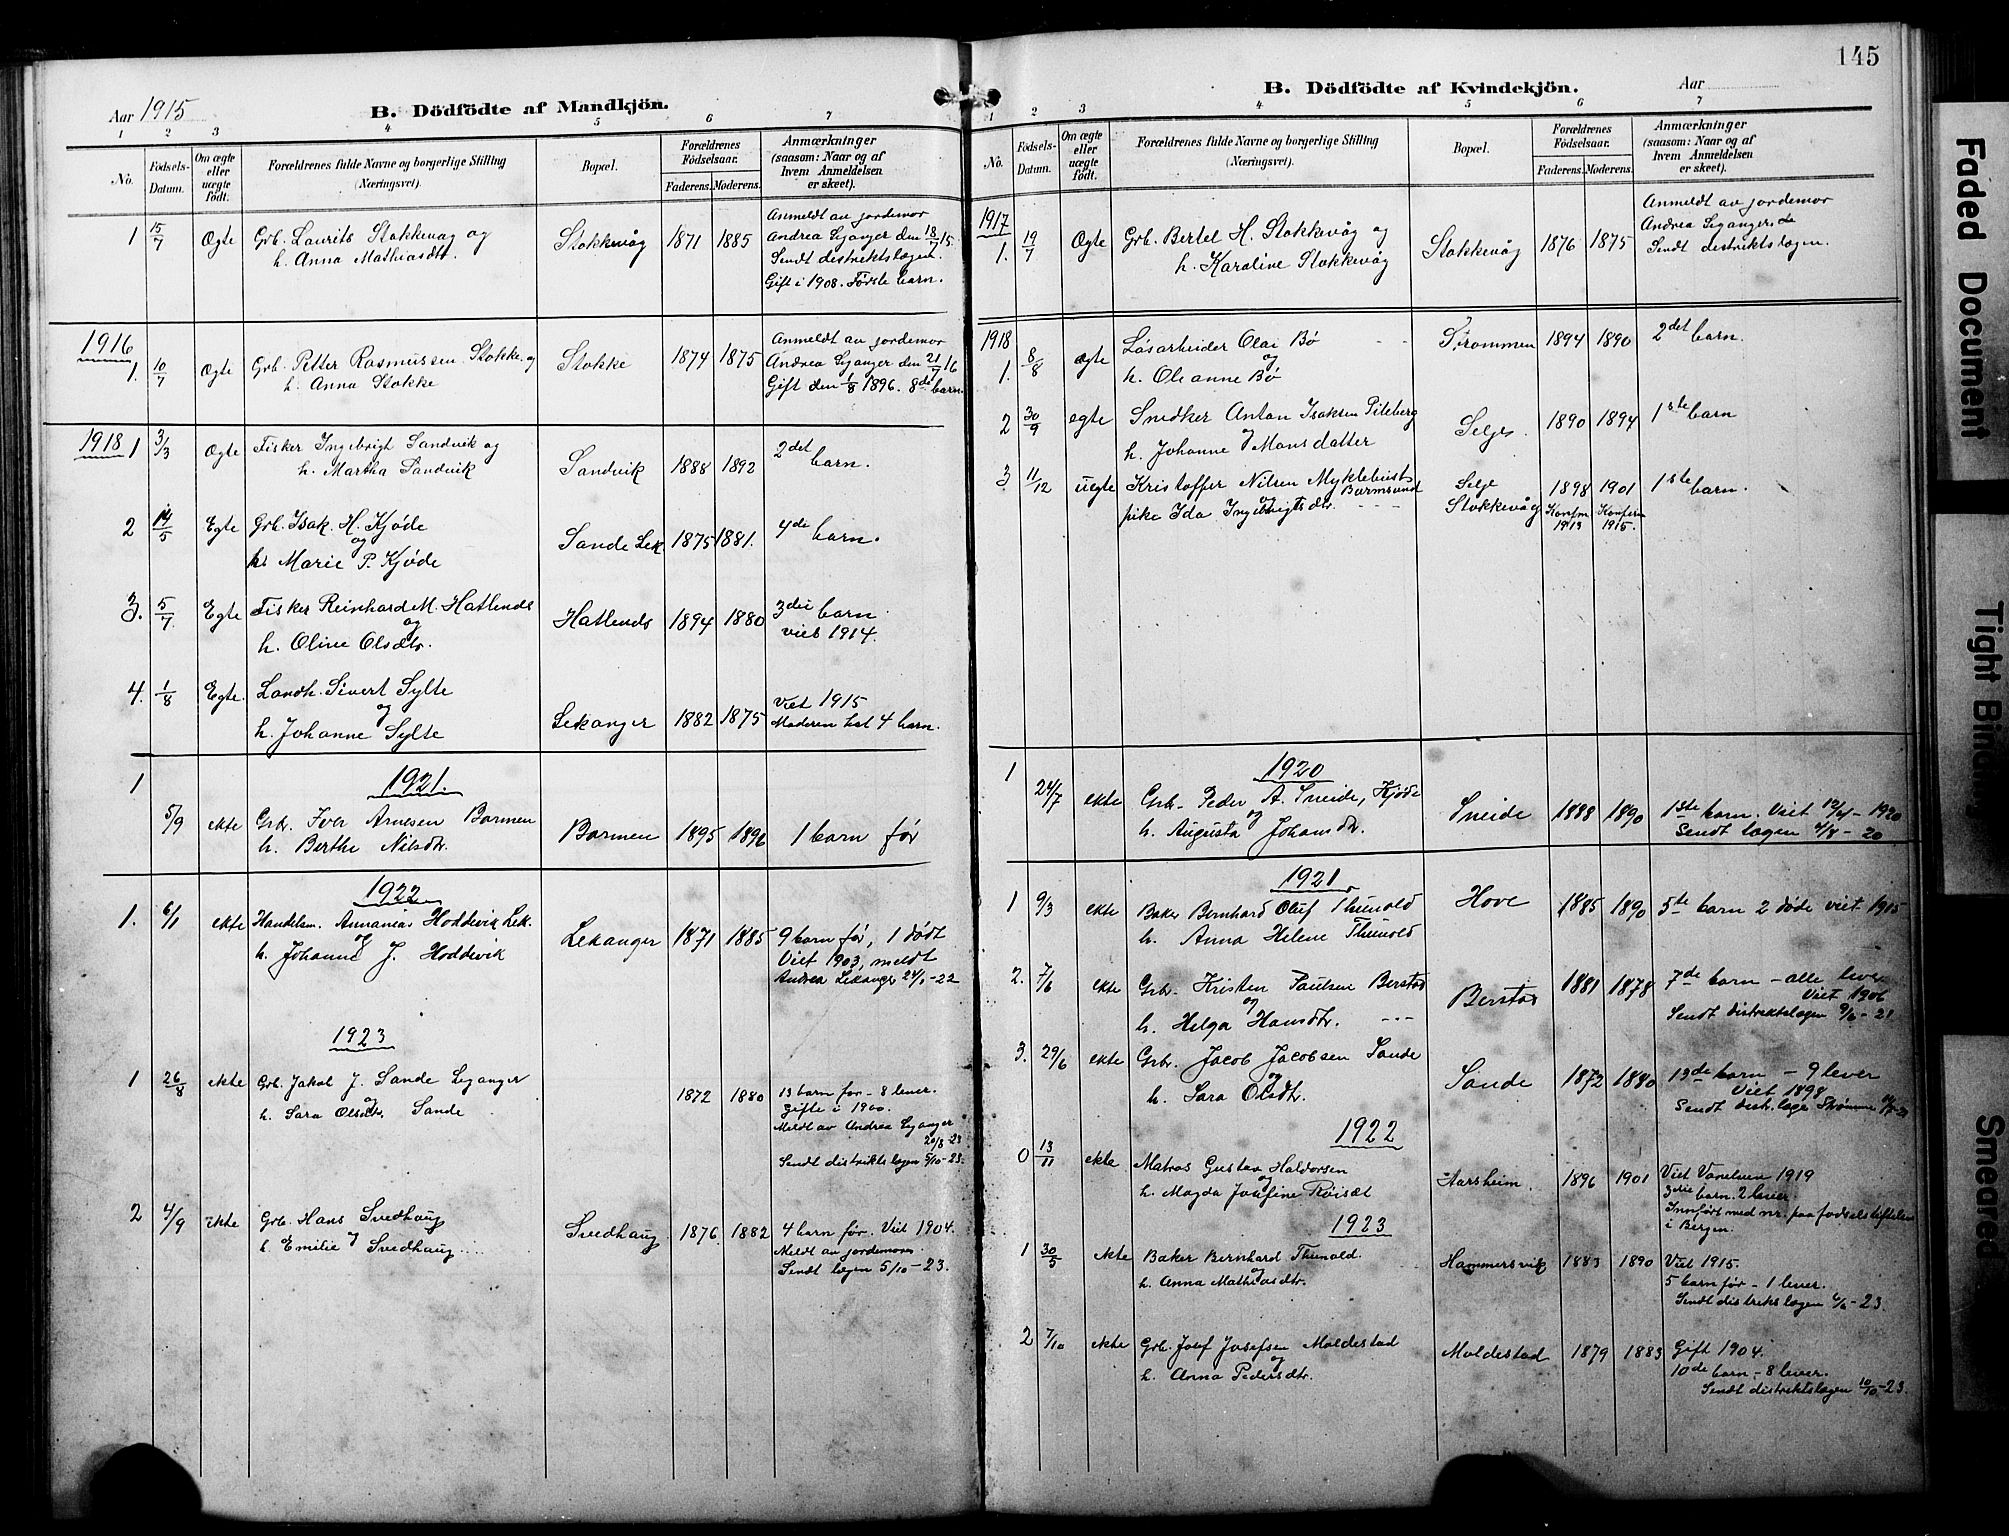 Aar 1915
B. Dödfödte af Mandkjön.
1 2 3 4 5 6 7
No.
Fødsels-Datum.
Om ægte eller uægte födt.
Forældrenes fulde Navne og borgerlige Stilling
(Næringsvei).
Bopæl.
Forældrenes Födselsaar.
Faderens. Moderens.
Anmærkninger
(saasom: Naar og af
hvem Anmeldelsen
er skeet).
1 15/7 Ægte Grb. Laurits Stokkevag og
h. Anna Mathiasdtr.
Stokkevåg 1871 1885
Anmeldt av jordemor
Andrea Leganger den 18/7 15.
Sendt distriktslægen.
Gift i 1908. Første barn.
1916
1. 10/7 Ægte Grb. Petter Rasmussen Stokke og
h. Anna Stokke
Stokke 1874 1875
Anmeldt av jordemor
Andrea Leganger den 21/7 16
Gift den 1/8 1896. 8de barn.
1918 1 3/3 Ægte Fisker Ingebrigt Sandvik og
h. Martha Sandvik
Sandvik 1888 1892 2det barn.
2 14/5 Egte Grb. Isak. H. Kjøde
og
h. Marie P. Kjøde
Sande Lek 1875 1881. 4de barn.
3. 5/7 Egte Fisker Reinhard M. Hatlenes
og
h. Oline Olsdtr.
Hatlenes 1894 1880 3die barn
viet 1914.
4. 1/8 Egte Landh. Sivert Sylte
og
h. Johanne Sylte
Lekanger 1882 1875 Viet 1915
Moderen hat 4 barn.
1 1921.
5/9 ekte Grb. Iver Arnesen Barmen
h. Berthe Nilsdtr.
Barmen 1895 1896 1 barn før
1922
1. 6/1 ekte Handelsm. Annanias Hoddevik Lek.
og
h. Johanne J. Hoddevik
Lekanger 1871 1885 9 barn før, 1 dødt
Viet 1903, meldt
Andrea Lekanger 24/1-22
1923
1 26/8 ekte Grb. Jakob J. Sande Leganger
og
h. Sara Olsdtr. Sande
1872 1880 13 barn før - 8 lever.
Gifte i 1900.
Meldt av Andrea Leganger
20/8-23
Sendt distriktslægen 5/10-23.
2 4/9 ekte Grb. Hans Svedhaug
og
h. Emilie Svedhaug
Svedhaug 1876 1882 4 barn før. Viet 1904.
Meldt av jordemoren.
Sendt lægen 5/10-23.
145
B. Dödfödte af Kvindekjön.
Aar
1 2 3 4 5 6 7
No.
Födsels-Datum.
Om ægte eller uægte födt.
Forældrenes fulde Navne og borgerlige Stilling
(Næringsvei).
Bopæl.
Forældrenes Födselsaar.
Faderens. Moderens.
Anmærkninger
(saasom: Naar og af
hvem Anmeldelsen
er skeet).
1917
1. 19/7 Ægte Grb. Bertel H. Stokkevåg og
h. Karoline Stokkevåg
Stokkevåg 1876 1875
Anmeldt av jordemor
Andrea Leganger, de
Sendt distriktslægen.
1918
1. 8/8 ægte Løsarbeider Olai Bø
og
h. Oleanne Bø
Strømmen 1894 1890 2det barn.
2 30/9 egte Snedker Anton Isaksen Pileberg
og
h. Johanne Monsdatter
Selje. 1890 1894 1ste barn
3 11/12 uegte Kristoffer Nilsen Myklebust Barmsund
og
pike Ida Ingebrigtsdtr.
Selje
Stokkevåg 1898 1901 1ste barn.
Konfm 1913 Konferm 1915.
1 1920
24/7 ekte Grb. Peder A. Sneide, Kjøde
og
h. Augusta Johansdtr.
Sneide 1888 1890 1ste barn. Viet 12/4-1920
Sendt lægen 4/8-20
1921
1 9/3 ekte Baker Bernhard Oluf Thunold
h. Anna Helene Thunold
Hove 1885 1890 5te barn 2 døde viet 1915
2. 7/6 ekte Grb. Kristen Paulsen Berstad
og
h. Helga Hansdtr.
Berstad 1881 1878 7de barn - alle lever
Viet 1906
Sendt distriktslægen 9/6-21
3. 29/6 ekte Grb. Jacob Jacobsen Sande
og
h. Sara Olsdtr.
Sande 1872 1880 13de barn - 9 lever
Viet 1898
Sendt distr. læge Strømme
1922
0 13/11 ekte Matros Gustav Haldorsen
og
h. Magda Josefine Røiset
Aarsheim 1896 1901 Viet Vanelven 1919
3die barn. 2 lever.
Innført med nr. paa fødselstiftelsen
i Bergen.
1923
1 30/5 ekte Baker Bernhard Thunold.
og
h. Anna Mathiasdtr.
Hammersvik 1883 1890 Viet 1915.
5 barn før - 1 lever.
Sendt distrikslægen 4/6-23.
2 7/10 ekte Grb. Josef Josefsen Moldestad
og
h. Anna Pedersdtr.
Moldestad 1879 1883 Gift 1904.
10de barn - 8 lever.
Sendt distriktslægen 10/10-23.
Faded Document
Tight Binding
Smeared